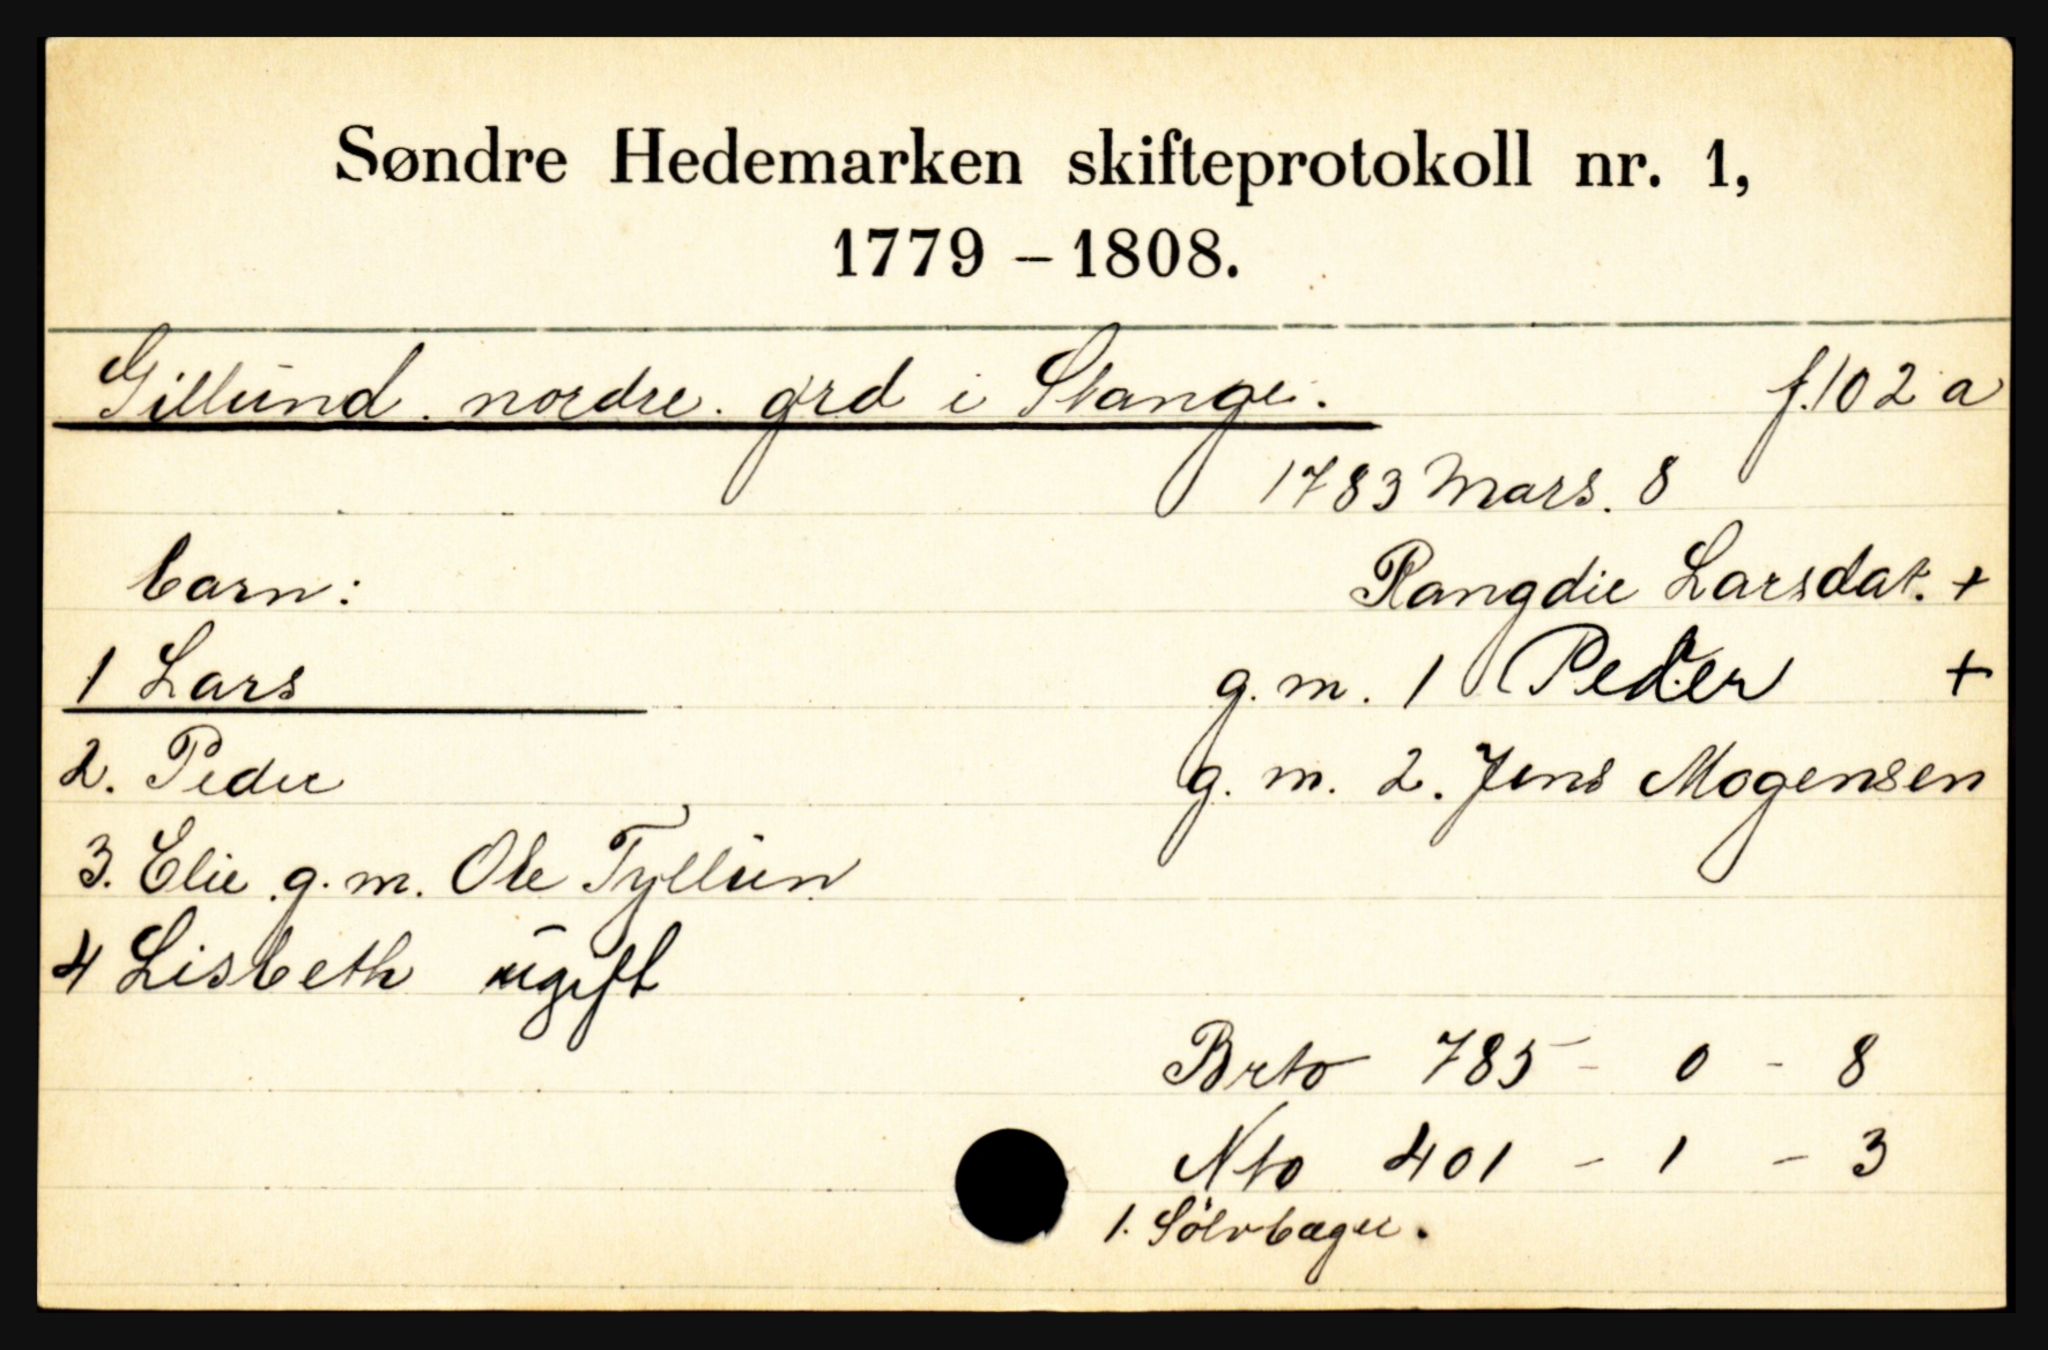 Søndre Hedemarken skifteprotokoll nr. 1,
1779 – 1808.
Gillund nordre grd i Stange. f. 102 a
1783 Mars. 8
barn: Rangdie Larsdat. +
1 Lars g. m. 1 Peder +
2. Peder g. m. 2. Jens Mogensen
3. Elie g. m. Ole Tyllun
4 Lisbeth ugift
Brto 785 - 0 - 8
Nto 401 - 1 - 3
1. Sölvbæger.